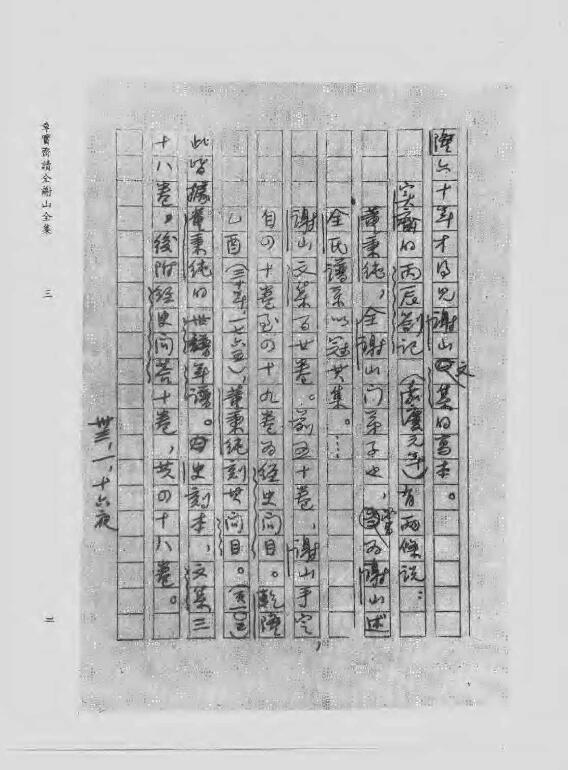 隆六十年才得見謝山文集的高本。
實齋的丙辰劄記(嘉慶元年)有兩條說:
董秉純,全謝山門弟子也,嘗為謝山述
全氏譜系以冠其集。……
謝山文集百廿卷。前五十卷,謝山手定,
自の十卷至の十九卷為經史問目。乾隆
乙酉(三十年,一七六五),董秉純刻其問目。
此皆據董秉純的世譜年譜。史刻本,文集三
十八卷。後附經史問答十卷,共の十八卷。
卅三,一,十六夜
章實齋讀全謝山全集
三
三